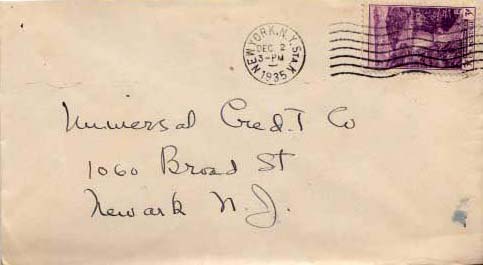 NEW YORK, N.Y. STA.K
DEC 2
3-PM
1935
Universal Credit Co
1060 Broad St
Newark N.J.